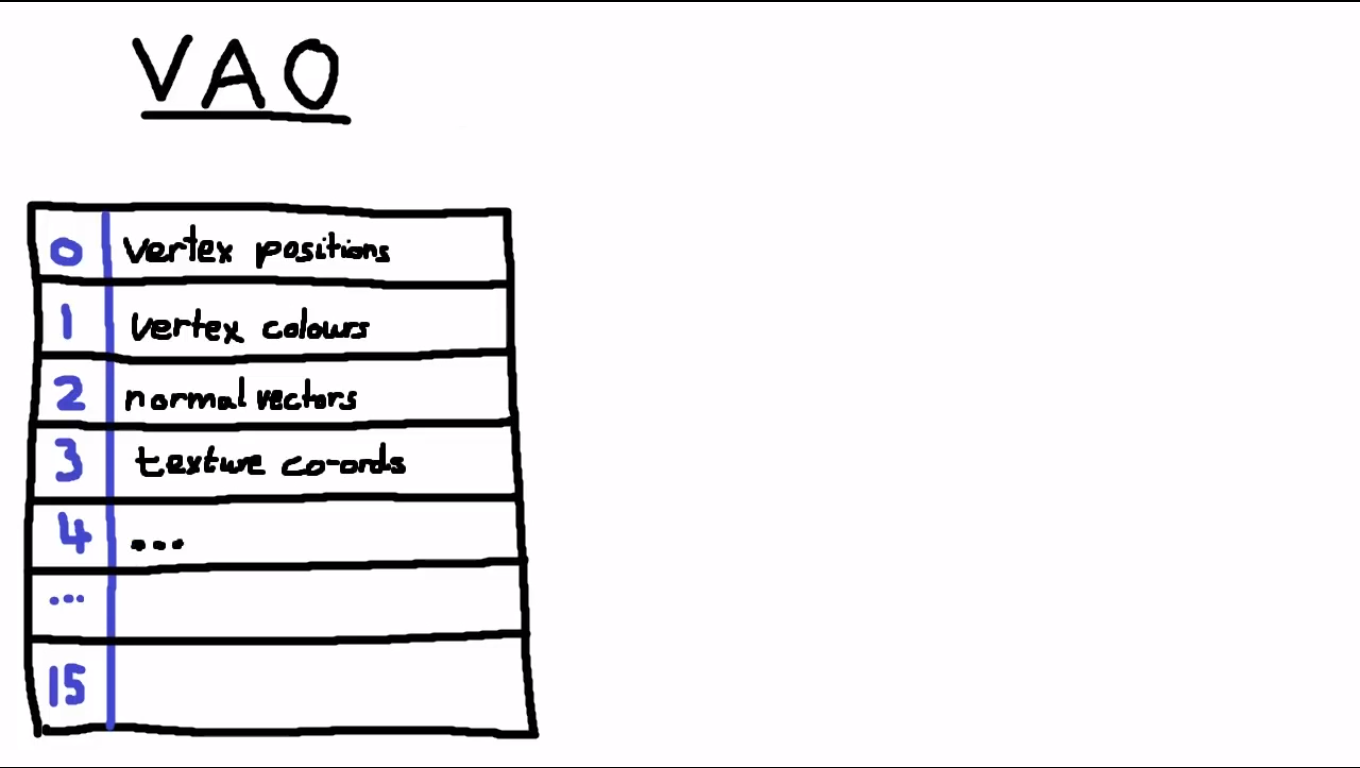 VAO
0 Vertex positions
1 Vertex colours
2 normal vectors
3 texture co-ords
4 ...
...
15